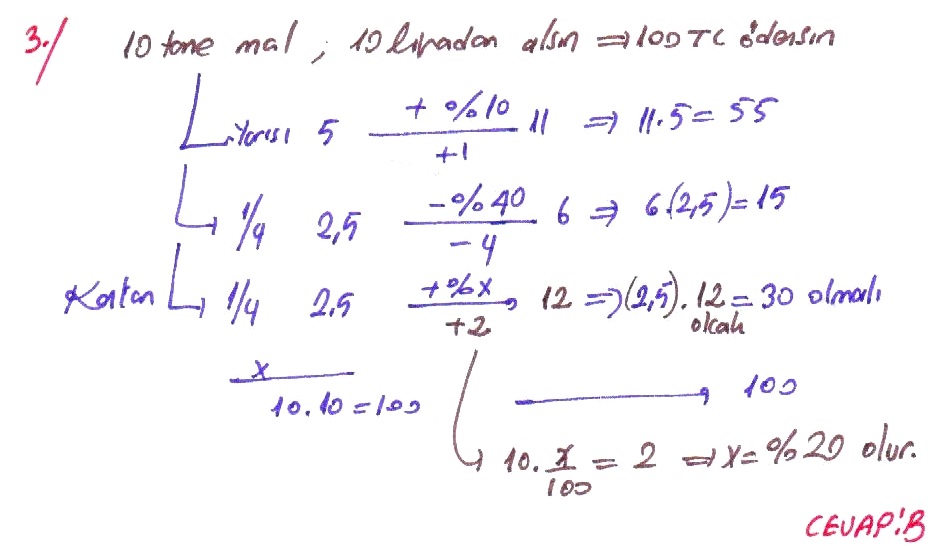 3./ 10 tane mal, 10 liradan alsın ⇒ 100 TL ödersin
Yarısı 5 + %10 / +1 11 ⇒ 11.5 = 55
1/4 2,5 - %40 / - 4 6 ⇒ 6.(2,5) = 15
Kalan 1/4 2,5 + %x / +2 12 ⇒ (2,5).12 = 30 olmalı
olcak
x
10.10 = 100 100
10. x/100 = 2 ⇒ x = %20 olur.
CEVAP: B